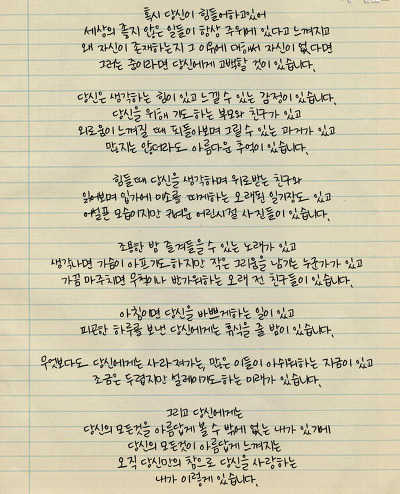 혹시 당신이 힘들어하고있어
세상의 좋지 않은 일들이 항상 주위에 있다고 느껴지고
왜 자신이 존재하는지 그 이유에 대해서 자신이 없다면
그러는 중이라면 당신에게 고백할 것이 있습니다.
당신은 생각하는 힘이 있고 느낄 수 있는 감정이 있습니다.
당신을 위해 기도하는 부모와 친구가 있고
외로움이 느껴질 때 뒤돌아보며 그릴 수 있는 과거가 있고
많지는 않더라도 아름다운 추억이 있습니다.
힘들때 당신을 생각하며 위로받는 친구와
읽어보며 입가에 미소를 띠게하는 오래된 일기장도 있고
어설픈 모습이지만 귀여운 어린시절 사진들이 있습니다.
조용한 밤 즐겨들을 수 있는 노래가 있고
생각나면 가슴이 아프기도하지만 작은 그리움을 남기는 누군가가 있고
가끔 마주치면 무척이나 반가워하는 오래 전 친구들이 있습니다.
아침이면 당신을 바쁘게하는 일이 있고
피곤한 하루를 보낸 당신에게는 휴식을 줄 밤이 있습니다.
무엇보다도 당신에게는 사라져가는, 많은 이들이 아쉬워하는 지금이 있고
조금은 두렵지만 설레이기도하는 미래가 있습니다.
그리고 당신에게는
당신의 모든것을 아름답게 볼 수 밖에 없는 내가 있기에
당신의 모든것이 아름답게 느껴지는
오직 당신만의 참으로 당신을 사랑하는
내가 이렇게 있습니다.